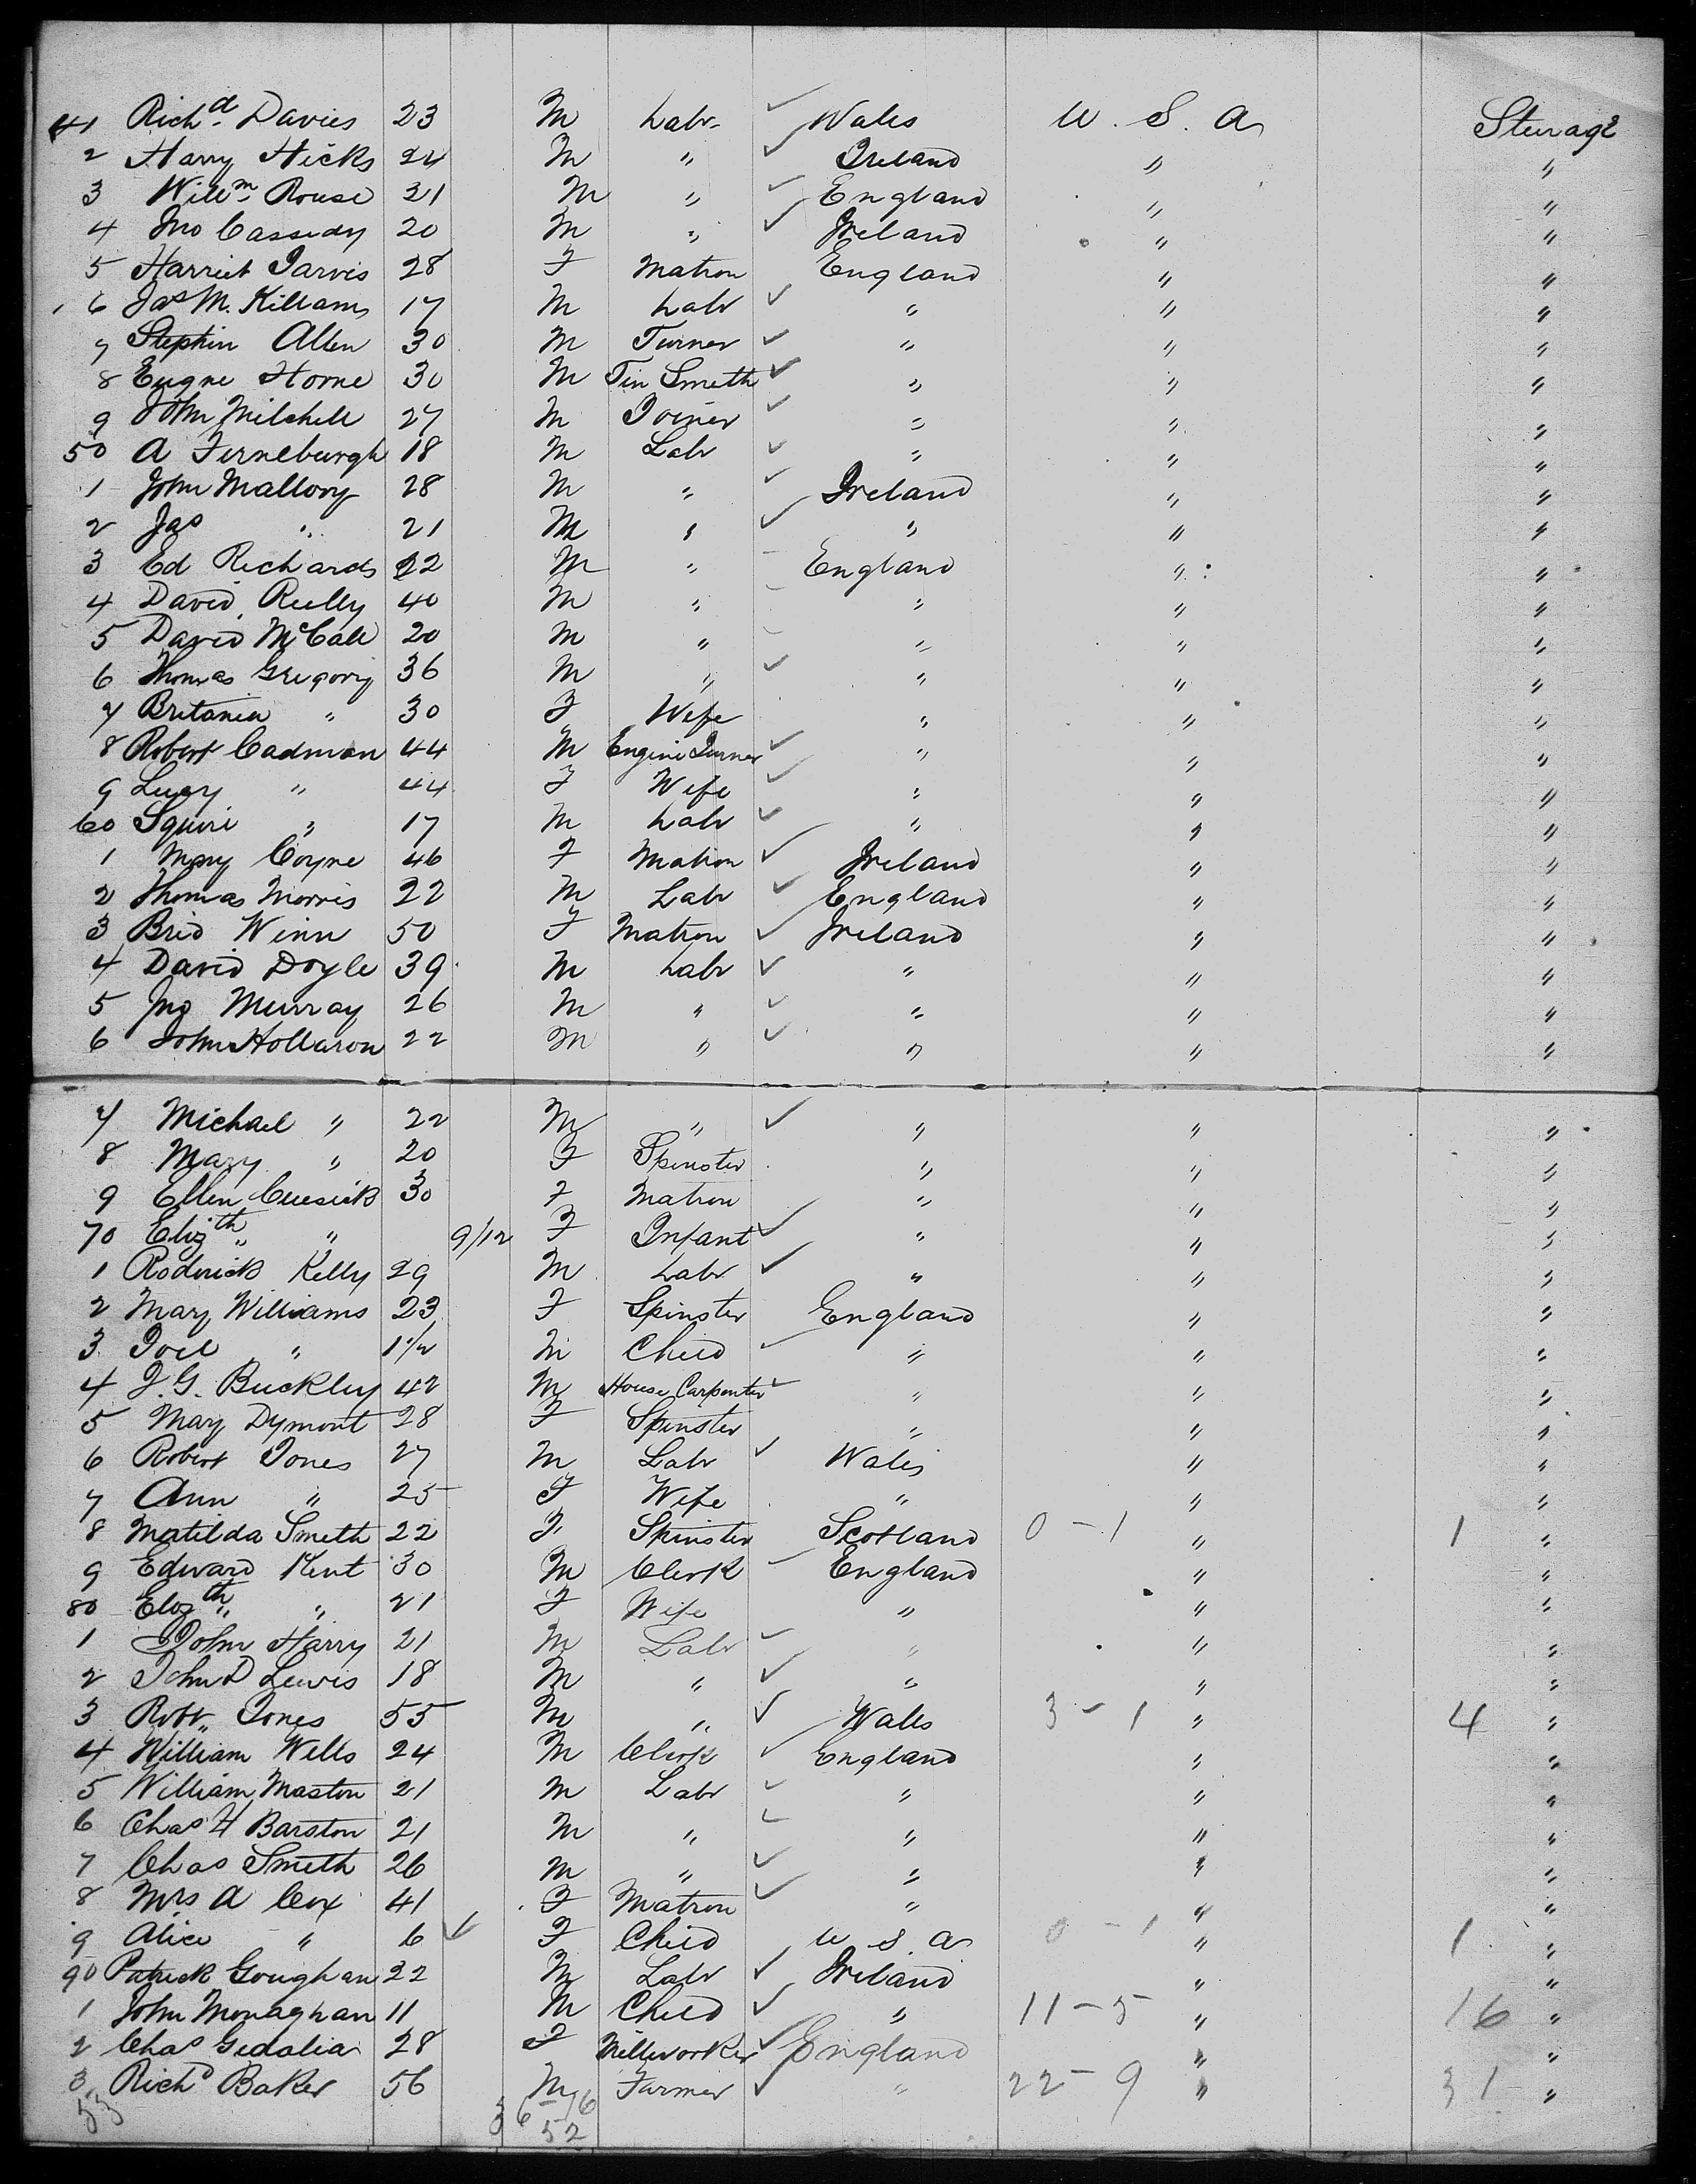 41 Richd Davies 23 M Labr Wales U. S. A Sterage
2 Harry Hicks 24 M " Ireland " "
3 Willm Rouse 21 M " England " "
4 Jno Cassidy 20 M " Ireland " "
5 Harriet Jarvis 28 F Matron England " "
6 Jas M. Killams 17 M Labr " " "
7 Stephin Allen 30 M Turner " " "
8 Eugne Horne 30 M Tin Smith " " "
9 John Mitchell 27 M Joiner " " "
50 A Ferneburgh 18 M Labr " " "
1 John Mallory 28 M " Ireland " "
2 Jas " 21 M " " " "
3 Ed Richards 22 M " England " "
4 David Reilly 40 M " " " "
5 David McCall 20 M " " " "
6 Thomas Gregory 36 M " " " "
7 Britania " 30 F Wife " " "
8 Robert Cadman 44 M Engine Turner " " "
9 Lucy " 44 F Wife " " "
60 Squire " 17 M Labr " " "
1 Mary Coyne 46 F Matron Ireland " "
2 Thomas Morris 22 M Labr England " "
3 Brid Winn 50 F Matron Ireland " "
4 David Doyle 39 M Labr " " "
5 Jno Murray 26 M " " " "
6 John Hollaron 22 M " " " "
7 Michael " 22 M " " " "
8 Mary " 20 F Spinster " " "
9 Ellen Cusick 30 F Matron " " "
70 Elizth " 9/12 F Infant " " "
1 Roderick Kelly 29 M Labr " " "
2 Mary Williams 23 F Spinster England " "
3 Joel " 1 1/2 M Child " " "
4 J. G. Buckley 42 M House Carpenter " " "
5 Mary Dymont 28 F Spinster " " "
6 Robert Jones 27 M Labr Wales " "
7 Ann " 25 F Wife " " "
8 Matilda Smith 22 F Spinster Scotland 0 - 1 " 1 "
9 Edward Kent 30 M Clerk England " "
80 Elizth " 21 F Wife " " "
1 John Harry 21 M Labr " " "
2 John D Lewis 18 M " " " "
3 Robt Jones 55 M " Wales 3 - 1 " 4 "
4 William Wells 24 M Clerk England " "
5 William Maston 21 M Labr " " "
6 Chas H Barston 21 M " " " "
7 Chas Smith 26 M " " " "
8 Mrs A Cox 41 F Matron " " "
9 Alice " 6 F Child U S. A 0 - 1 " 1 "
90 Patrick Goughan 22 M Labr Ireland " "
1 John Monaghan 11 M Child " 11 - 5 " 16 "
2 Chas Gedalia 28 F Millworker England " "
3 Richd Baker 56 M Farmer " 22 - 9 " 31 "
53 36 - 16
52